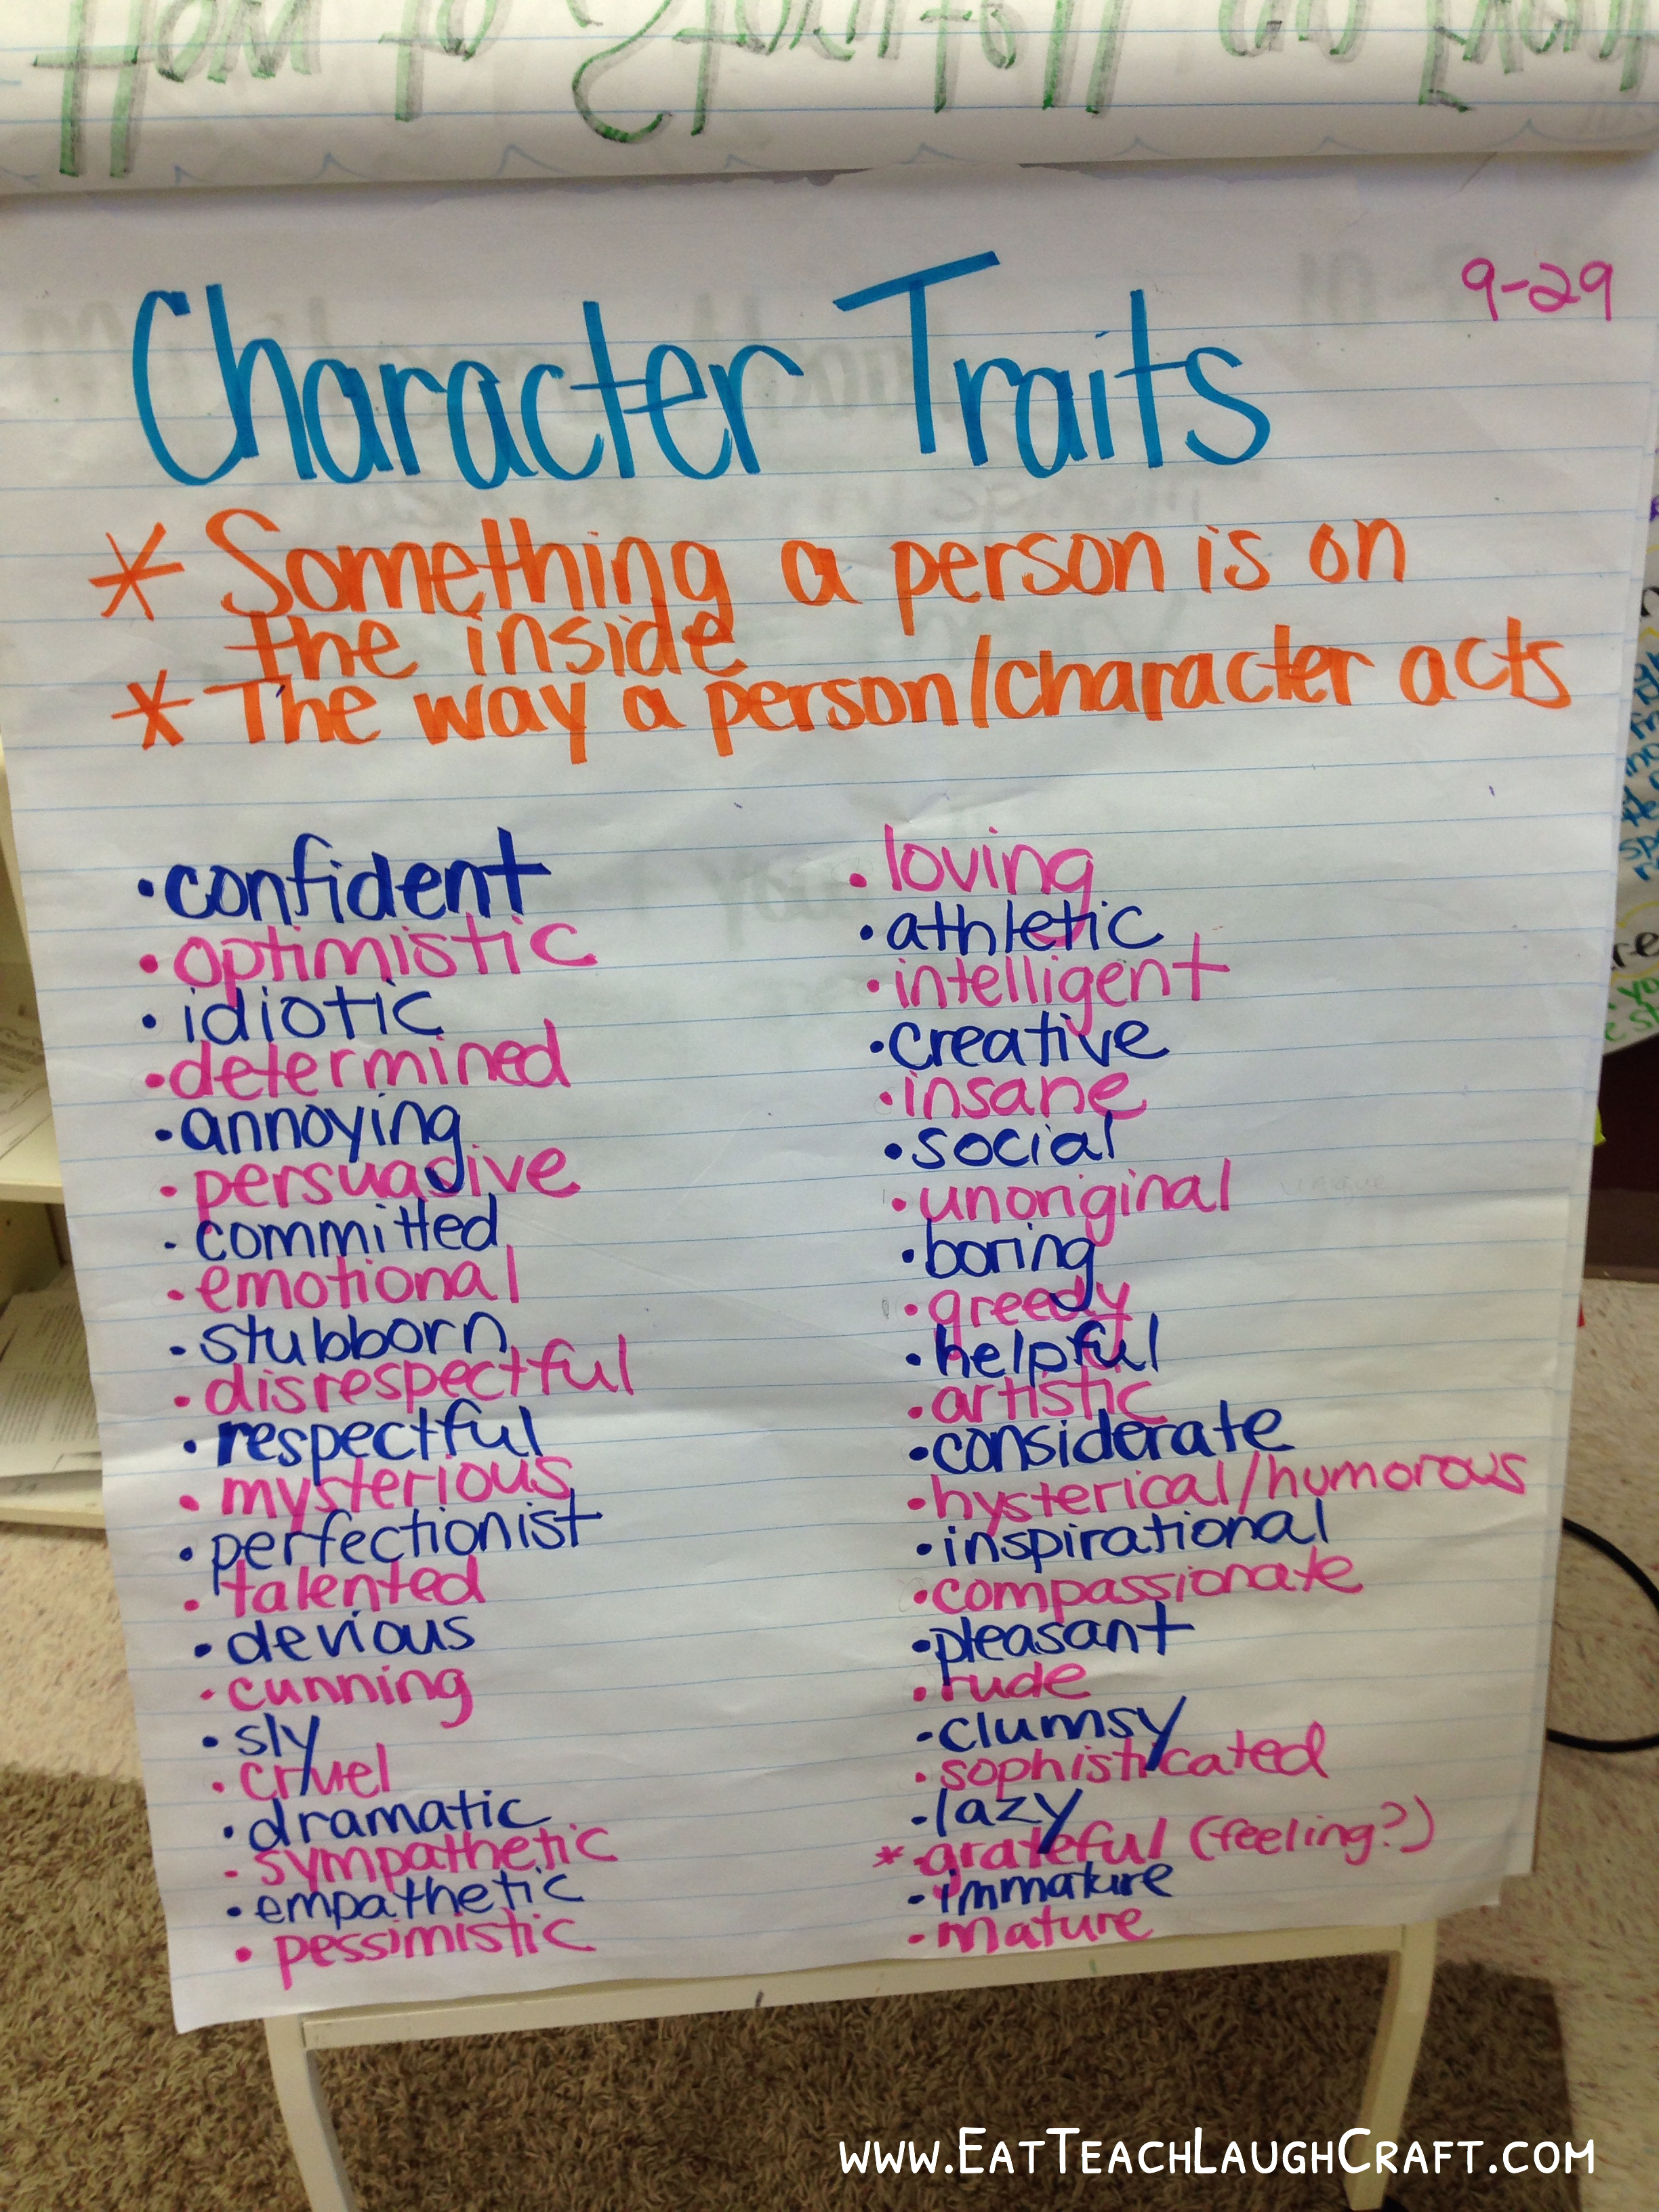 How to
9-29
Character Traits
* Something a person is on
the inside
* The way a person/character acts
• confident
• optimistic
• idiotic
• determined
• annoying
• persuasive
• committed
• emotional
• stubborn
• disrespectful
• respectful
• mysterious
• perfectionist
• talented
• devious
• cunning
• sly
• cruel
• dramatic
• sympathetic
• empathetic
• pessimistic
• loving
• athletic
• intelligent
• creative
• insane
• social
• unoriginal
• boring
• greedy
• helpful
• artistic
• considerate
• hysterical/humorous
• inspirational
• compassionate
• pleasant
• rude
• clumsy
• sophisticated
• lazy
* • grateful (feeling?)
• immature
• mature
www.EatTeachLaughCraft.com